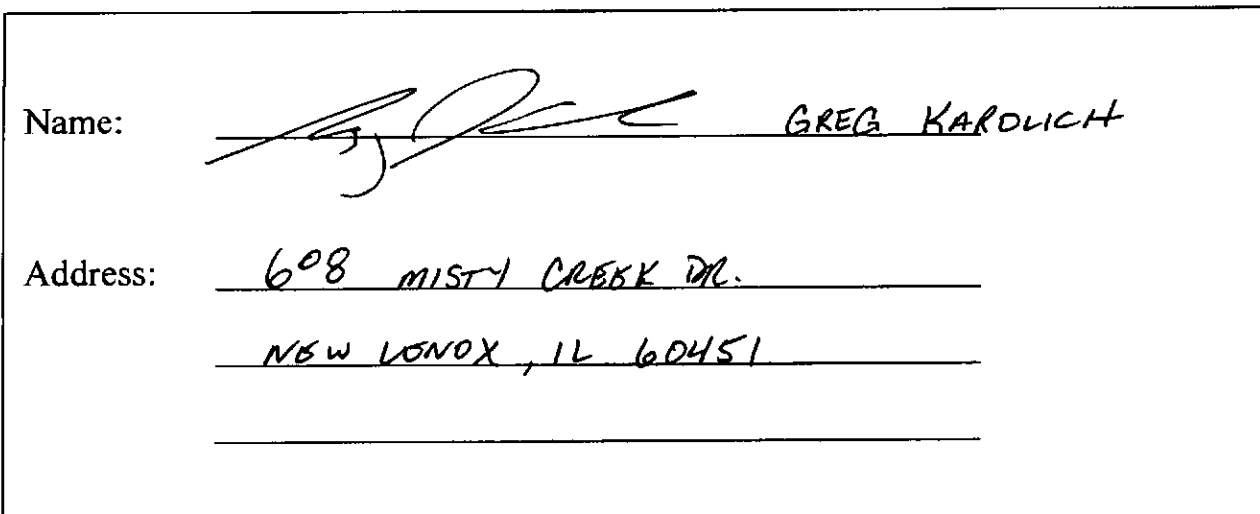 Name: GREG KAROLICH
Address: 608 MISTY CREEK DR.
NEW LENOX, IL 60451